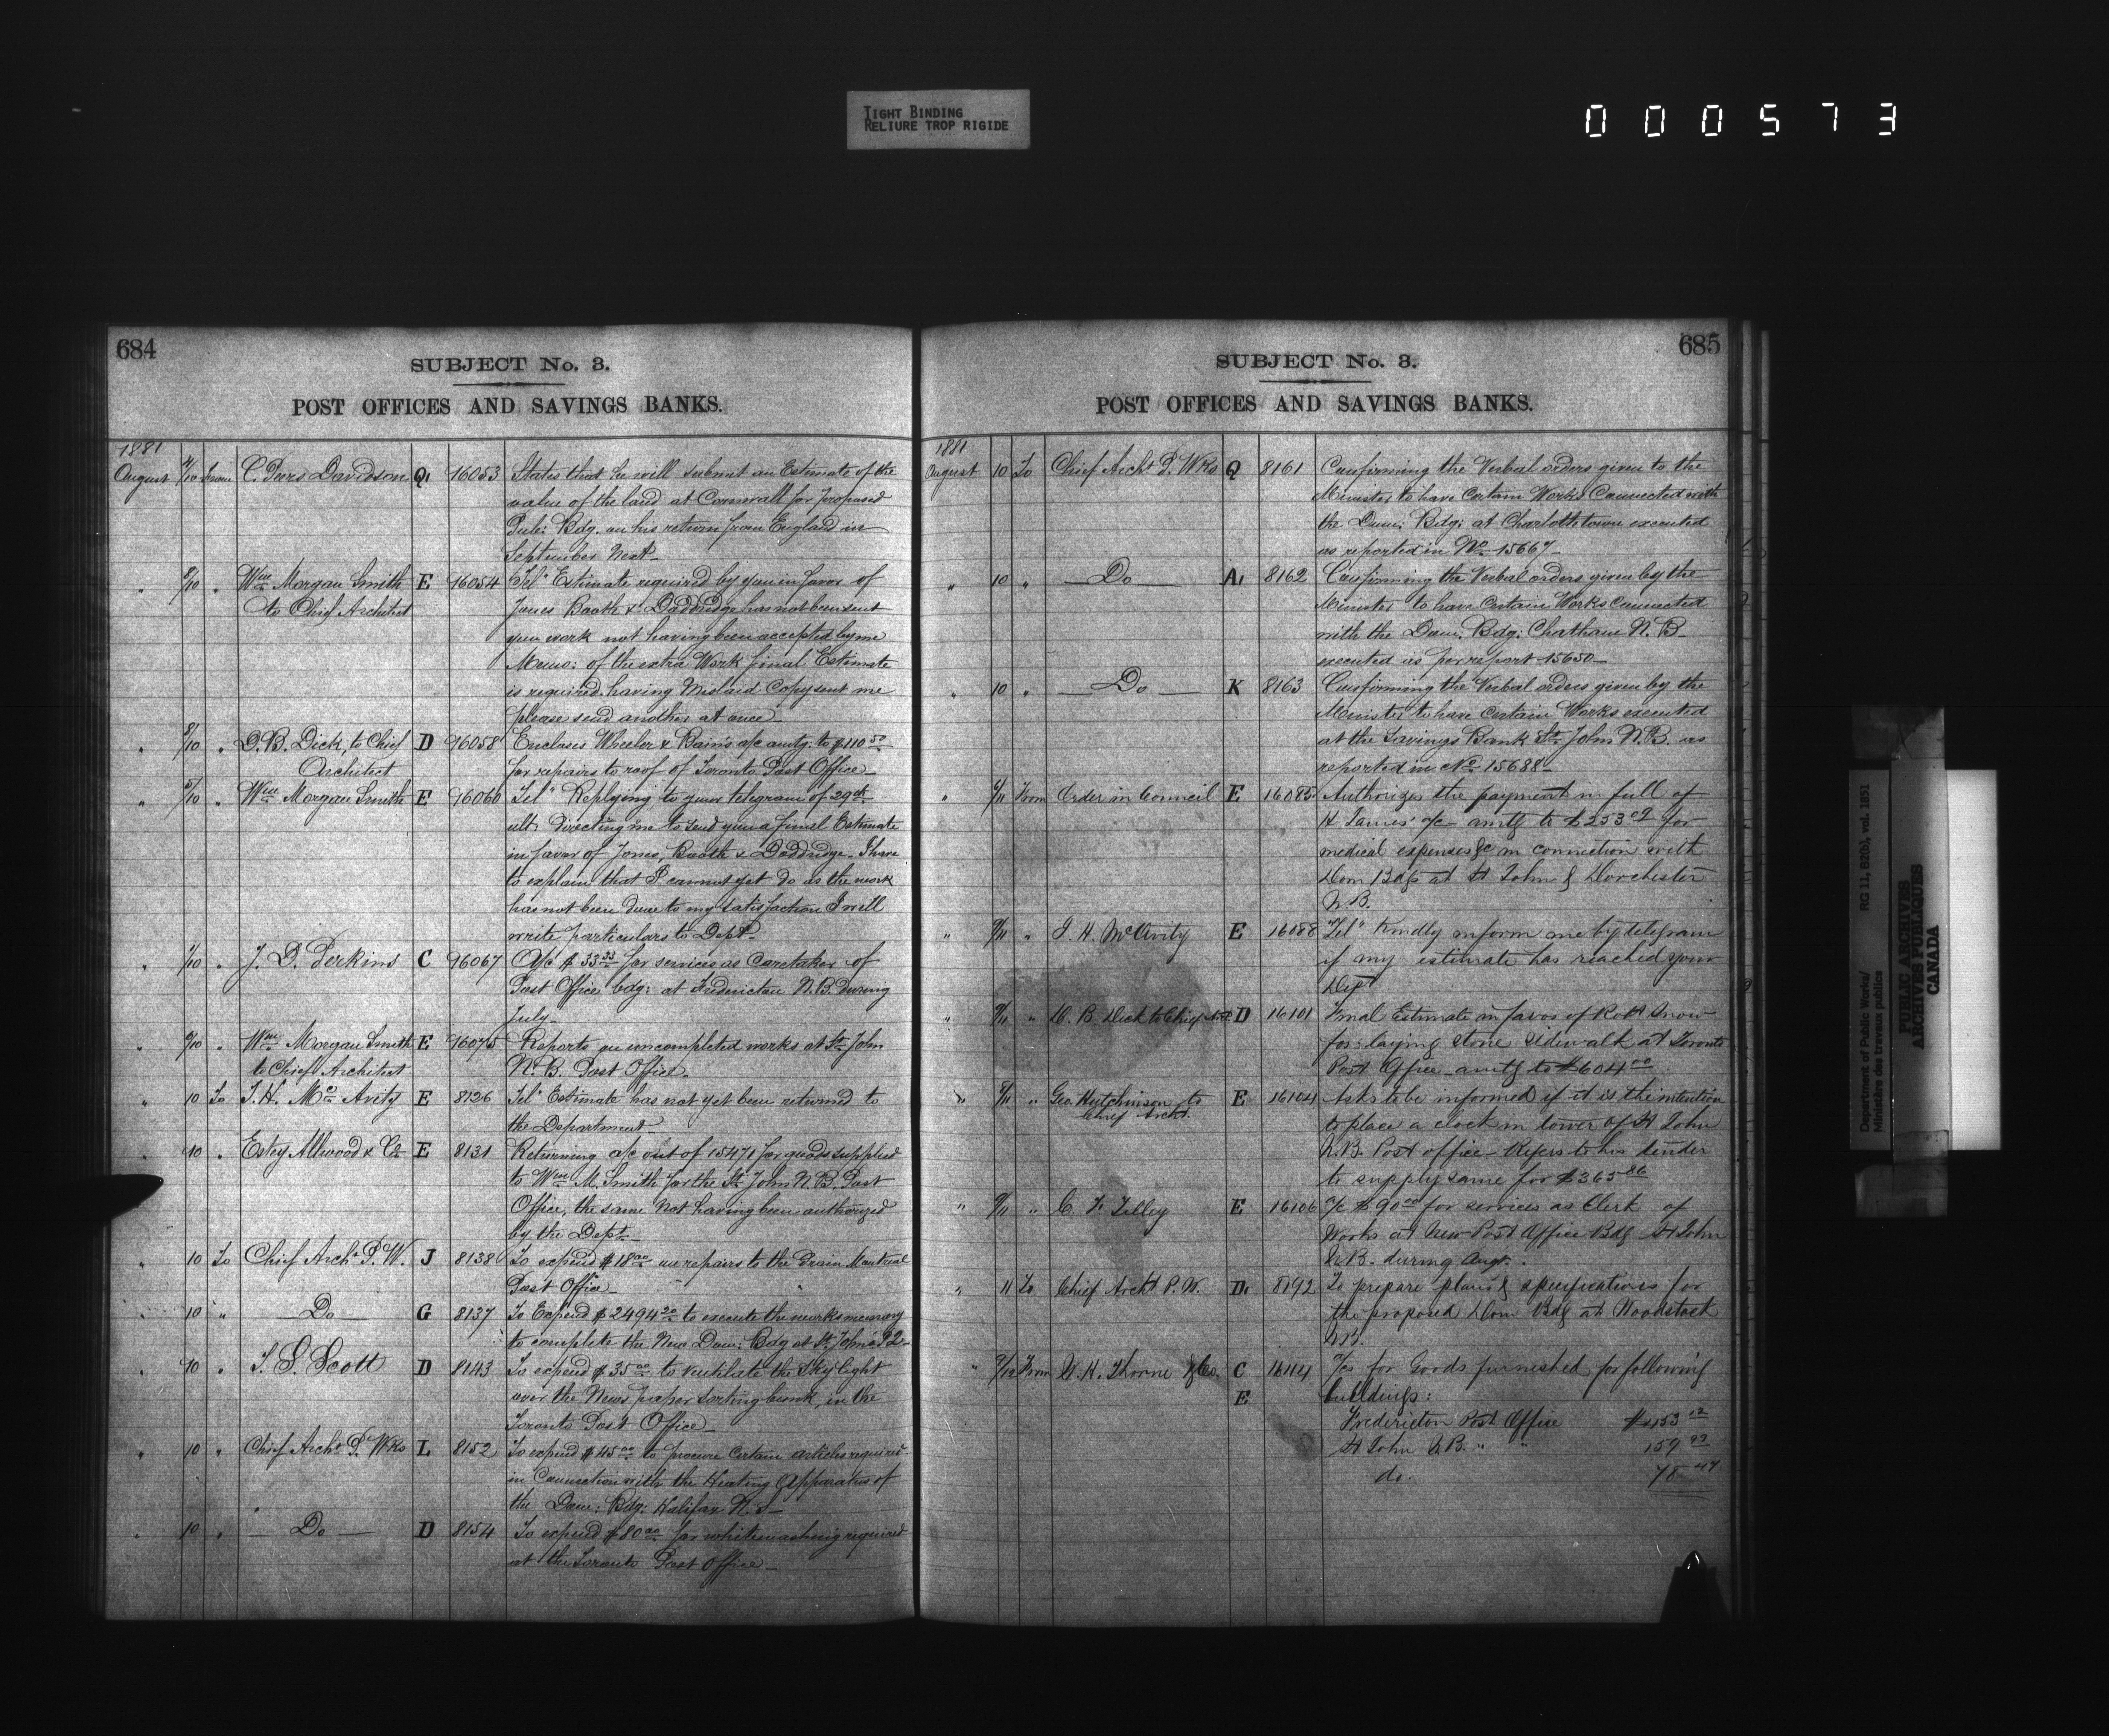 TIGHT BINDING
RELIURE TROP RIGIDE
000573
684
SUBJECT No. 3.
POST OFFICES AND SAVINGS BANKS.
1881
August 4/10 From C. Peers Davidson Q. 16053 States that he will submit an Estimate of the
value of the land at Cornwall for proposed
Pub: Bdg. on his return from England in
September Next
" 8/10 " Wm Morgan Smith E 16054 Tel" Estimate required by you in favor of
to Chief Architect Jones Booth & Doddridge has not been sent
you work not having been accepted by me
Memo: of the extra Work final Estimate
is required having Mislaid Copy sent me
please send another at once
" 8/10 " D.B. Dick, to Chief D 16058 Encloses Wheeler & Bain's a/c amtg: to $110 50
Architect for repairs to roof of Toronto Post Office
" 5/10 " Wm Morgan Smith E 16060 Tel" Replying to your telegram of 29th
ult. directing me to send you a final Estimate
in favor of Jones, Booth & Doddridge. I have
to explain that I cannot yet do as the work
has not been done to my satisfaction I will
write particulars to Dept.
" 1/10 " J. D. Perkins C 16067 A/c $33 33 for services as Caretaker of
Post Office bdg: at Fredericton N.B. During
July
" 6/10 " Wm Morgan Smith E 16075 Reports on uncompleted works at St. John
to Chief Architect N.B. Post Office.
" 10 To T. H. McAvity E 8126 Tel" Estimate has not yet been returned to
the Department
" 10 " Estey Allwood & Co E 8131 Returning a/c out of 15471 for goods supplied
to Wm M. Smith for the St. John N.B. Post
Office, the same Not having been authorized
by the Dept
" 10 To Chief Archt P.W. J 8138 To expend $18 00 on repairs to the Drain Montreal
Post Office
" 10 " Do G 8137 To Expend $2494 20 to execute the works necessary
to complete the New Dom: Bdg at St. John's P2
" 10 " T. S. Scott D 8143 To expend $35 00 to ventilate the Sky light
over the News paper sorting bunk, in the
Toronto Post Office
" 10 " Chief Archt P. Wks L 8152 To expend $45 00 to procure Certain articles required
in Connection with the Heating Apparatus of
the Dom: Bdg: Halifax N.S
" 10 " Do D 8154 To expend $80 00 for whitewashing required
at the Toronto Post Office
685
SUBJECT No. 3.
POST OFFICES AND SAVINGS BANKS.
1881
August 10 To Chief Archt P. Wks Q 8161 Confirming the Verbal orders given to the
Minister to have Certain Works Connected with
the Dom: Bdg: at Charlottetown executed
as reported in No 15667
" 10 " Do A. 8162 Confirming the Verbal orders given by the
Minister to have Certain Works Connected
with the Dom: Bdg: Chatham N.B
executed as per report 15650
" 10 " Do K 8163 Confirming the Verbal orders given by the
Minister to have Certain Works executed
at the Savings Bank St. John N.B. as
reported in No 15688
" 6/11 From Order in Council E 16085 Authorizes the payment in full of
H James' a/c amtg to $253 02 for
medical expenses &c in connection with
Dom Bdgs at St John & Dorchester
N.B.
" 9/11 " T. H. McAvity E 16088 Tel" Kindly inform me by telegram
if my estimate has reached your
Dept
" 9/11 " D. B. Dick to Chief Archt D 16101 Final Estimate in favor of Robt Snow
for laying stone sidewalk at Toronto
Post Office amtg to $604 00
" 8/11 " Geo. Hutchinson to E 16104 Asks to be informed if it is the intention
Chief Archt. to place a clock in tower of St John
N.B. Post office - Refers to his tender
to supply same for $365 86
" 9/11 " C. F. Tilley E 16106 a/c $90 00 for services as Clerk of
Works at New Post Office Bdg St John
N.B. during Augt.
" 11 To Chief Archt P.W. D. 8192 To prepare plans & specifications for
the proposed Dom Bdg at Woodstock
N.B.
" 9/12 From W. H. Thorne & Co. C 16114 a/cs for Goods furnished for following
E buildings:
Fredericton Post Office $153 12
St John N.B. " " 159 92
do. 78 44
Department of Public Works/ RG 11, B2(b), vol. 1851
Ministère des travaux publics
PUBLIC ARCHIVES
ARCHIVES PUBLIQUES
CANADA